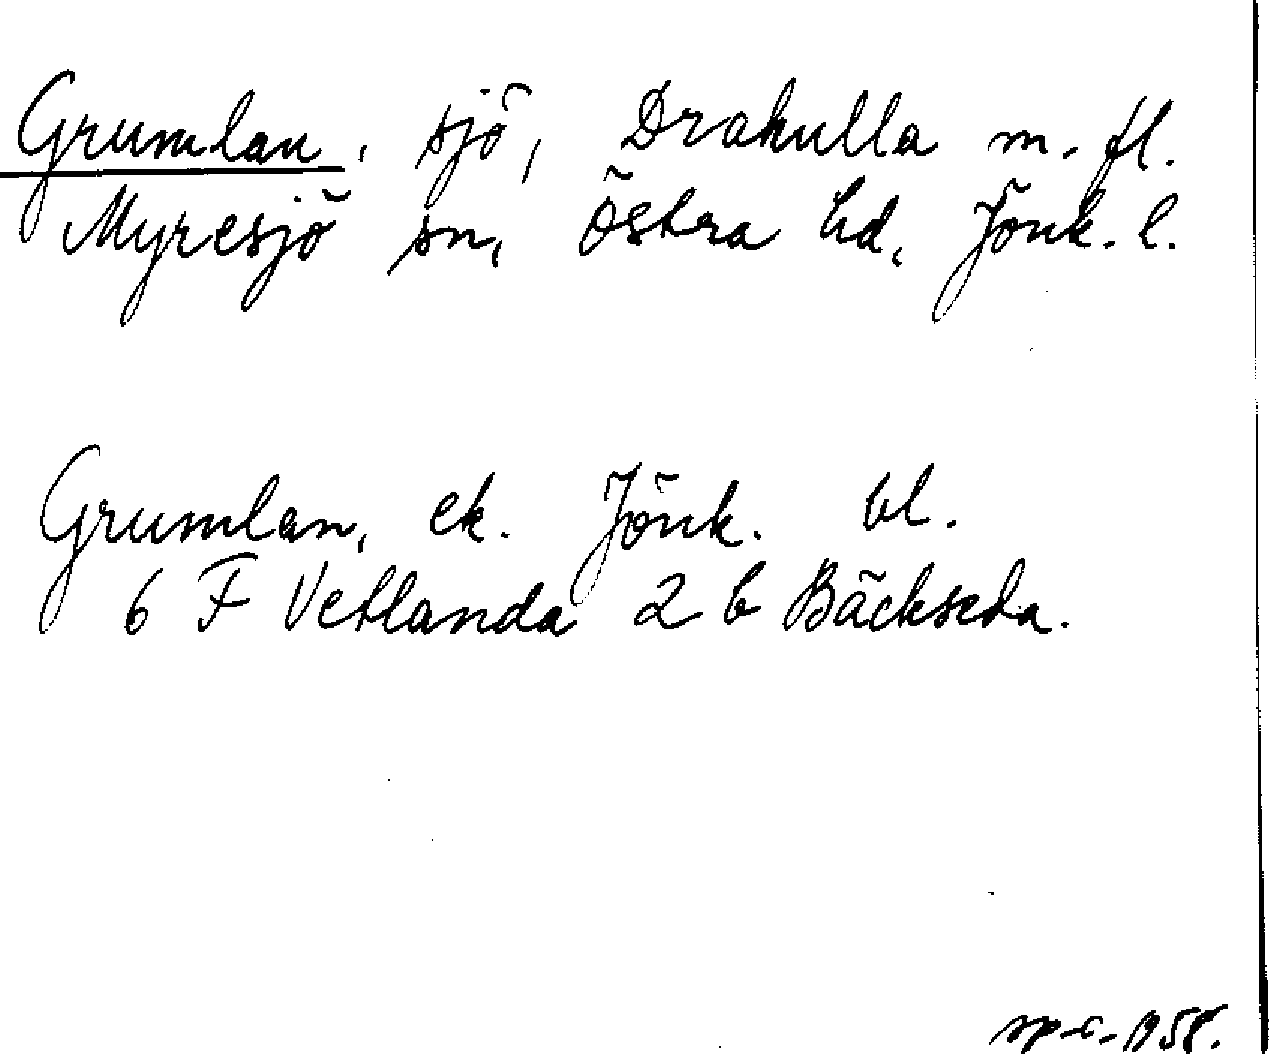 Grumlan, sjö, Drakulla m. fl.
Myresjö sn, Östra hd, Jönk. l.
Grumlan, ek. Jönk. bl.
6 F Vetlanda 2 b Bäckseda.
1958.